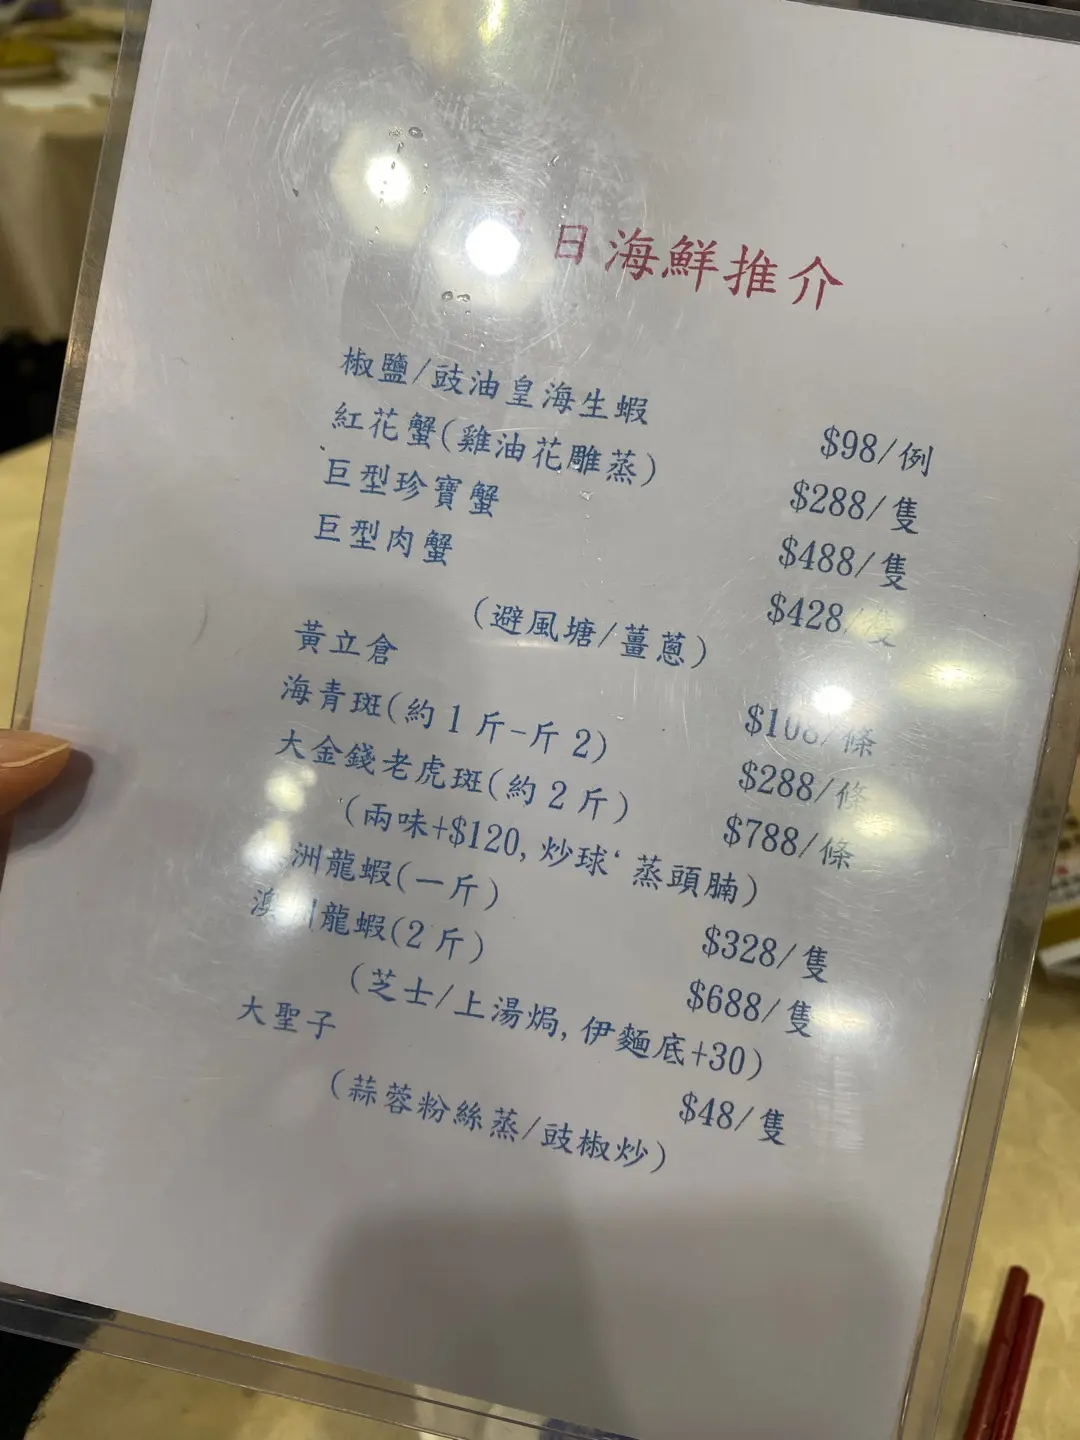 日海鮮推介
椒鹽/豉油皇海生蝦 $98/例
紅花蟹(雞油花雕蒸) $288/隻
巨型珍寶蟹 $488/隻
巨型肉蟹 $428/隻
(避風塘/薑蔥)
黃立倉 $108/條
海青斑(約1斤-斤2) $288/條
大金錢老虎斑(約2斤) $788/條
(兩味+$120,炒球‘蒸頭腩)
洲龍蝦(一斤) $328/隻
澳洲龍蝦(2斤) $688/隻
(芝士/上湯焗,伊麵底+30)
大聖子 $48/隻
(蒜蓉粉絲蒸/豉椒炒)